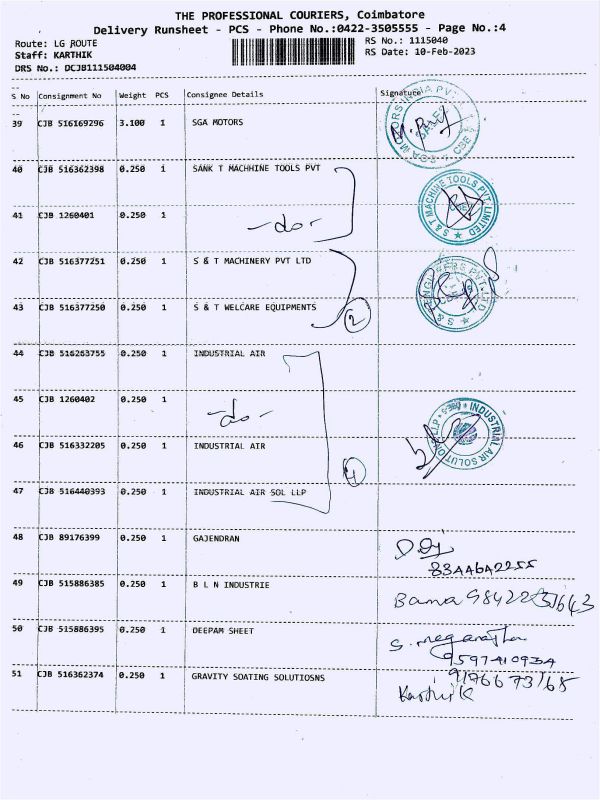 THE PROFESSIONAL COURIERS, Coimbatore
Delivery Runsheet - PCS - Phone No.:0422-3505555 - Page No.:4
Route: LG ROUTE RS No.: 1115040
Staff: KARTHIK RS Date: 10-Feb-2023
DRS No.: DCJB111504004
S No Consignment No Weight PCS Consignee Details Signature
39 CJB 516169296 3.100 1 SGA MOTORS
40 CJB 516362398 0.250 1 SANK T MACHHINE TOOLS PVT
S & T MACHINE TOOLS PVT. LIMITED
41 CJB 1260401 0.250 1 -do-
42 CJB 516377251 0.250 1 S & T MACHINERY PVT LTD
43 CJB 516377250 0.250 1 S & T WELCARE EQUIPMENTS
2
44 CJB 516263755 0.250 1 INDUSTRIAL AIR
45 CJB 1260402 0.250 1 -do-
INDUSTRIAL AIR SOLUTIONS LLP
46 CJB 516332205 0.250 1 INDUSTRIAL AIR
4
47 CJB 516440393 0.250 1 INDUSTRIAL AIR SOL LLP
48 CJB 89176399 0.250 1 GAJENDRAN
8344642255
49 CJB 515886385 0.250 1 B L N INDUSTRIE
Bama
50 CJB 515886395 0.250 1 DEEPAM SHEET
9597410934
51 CJB 516362374 0.250 1 GRAVITY SOATING SOLUTIOSNS
9176673168
Karthik